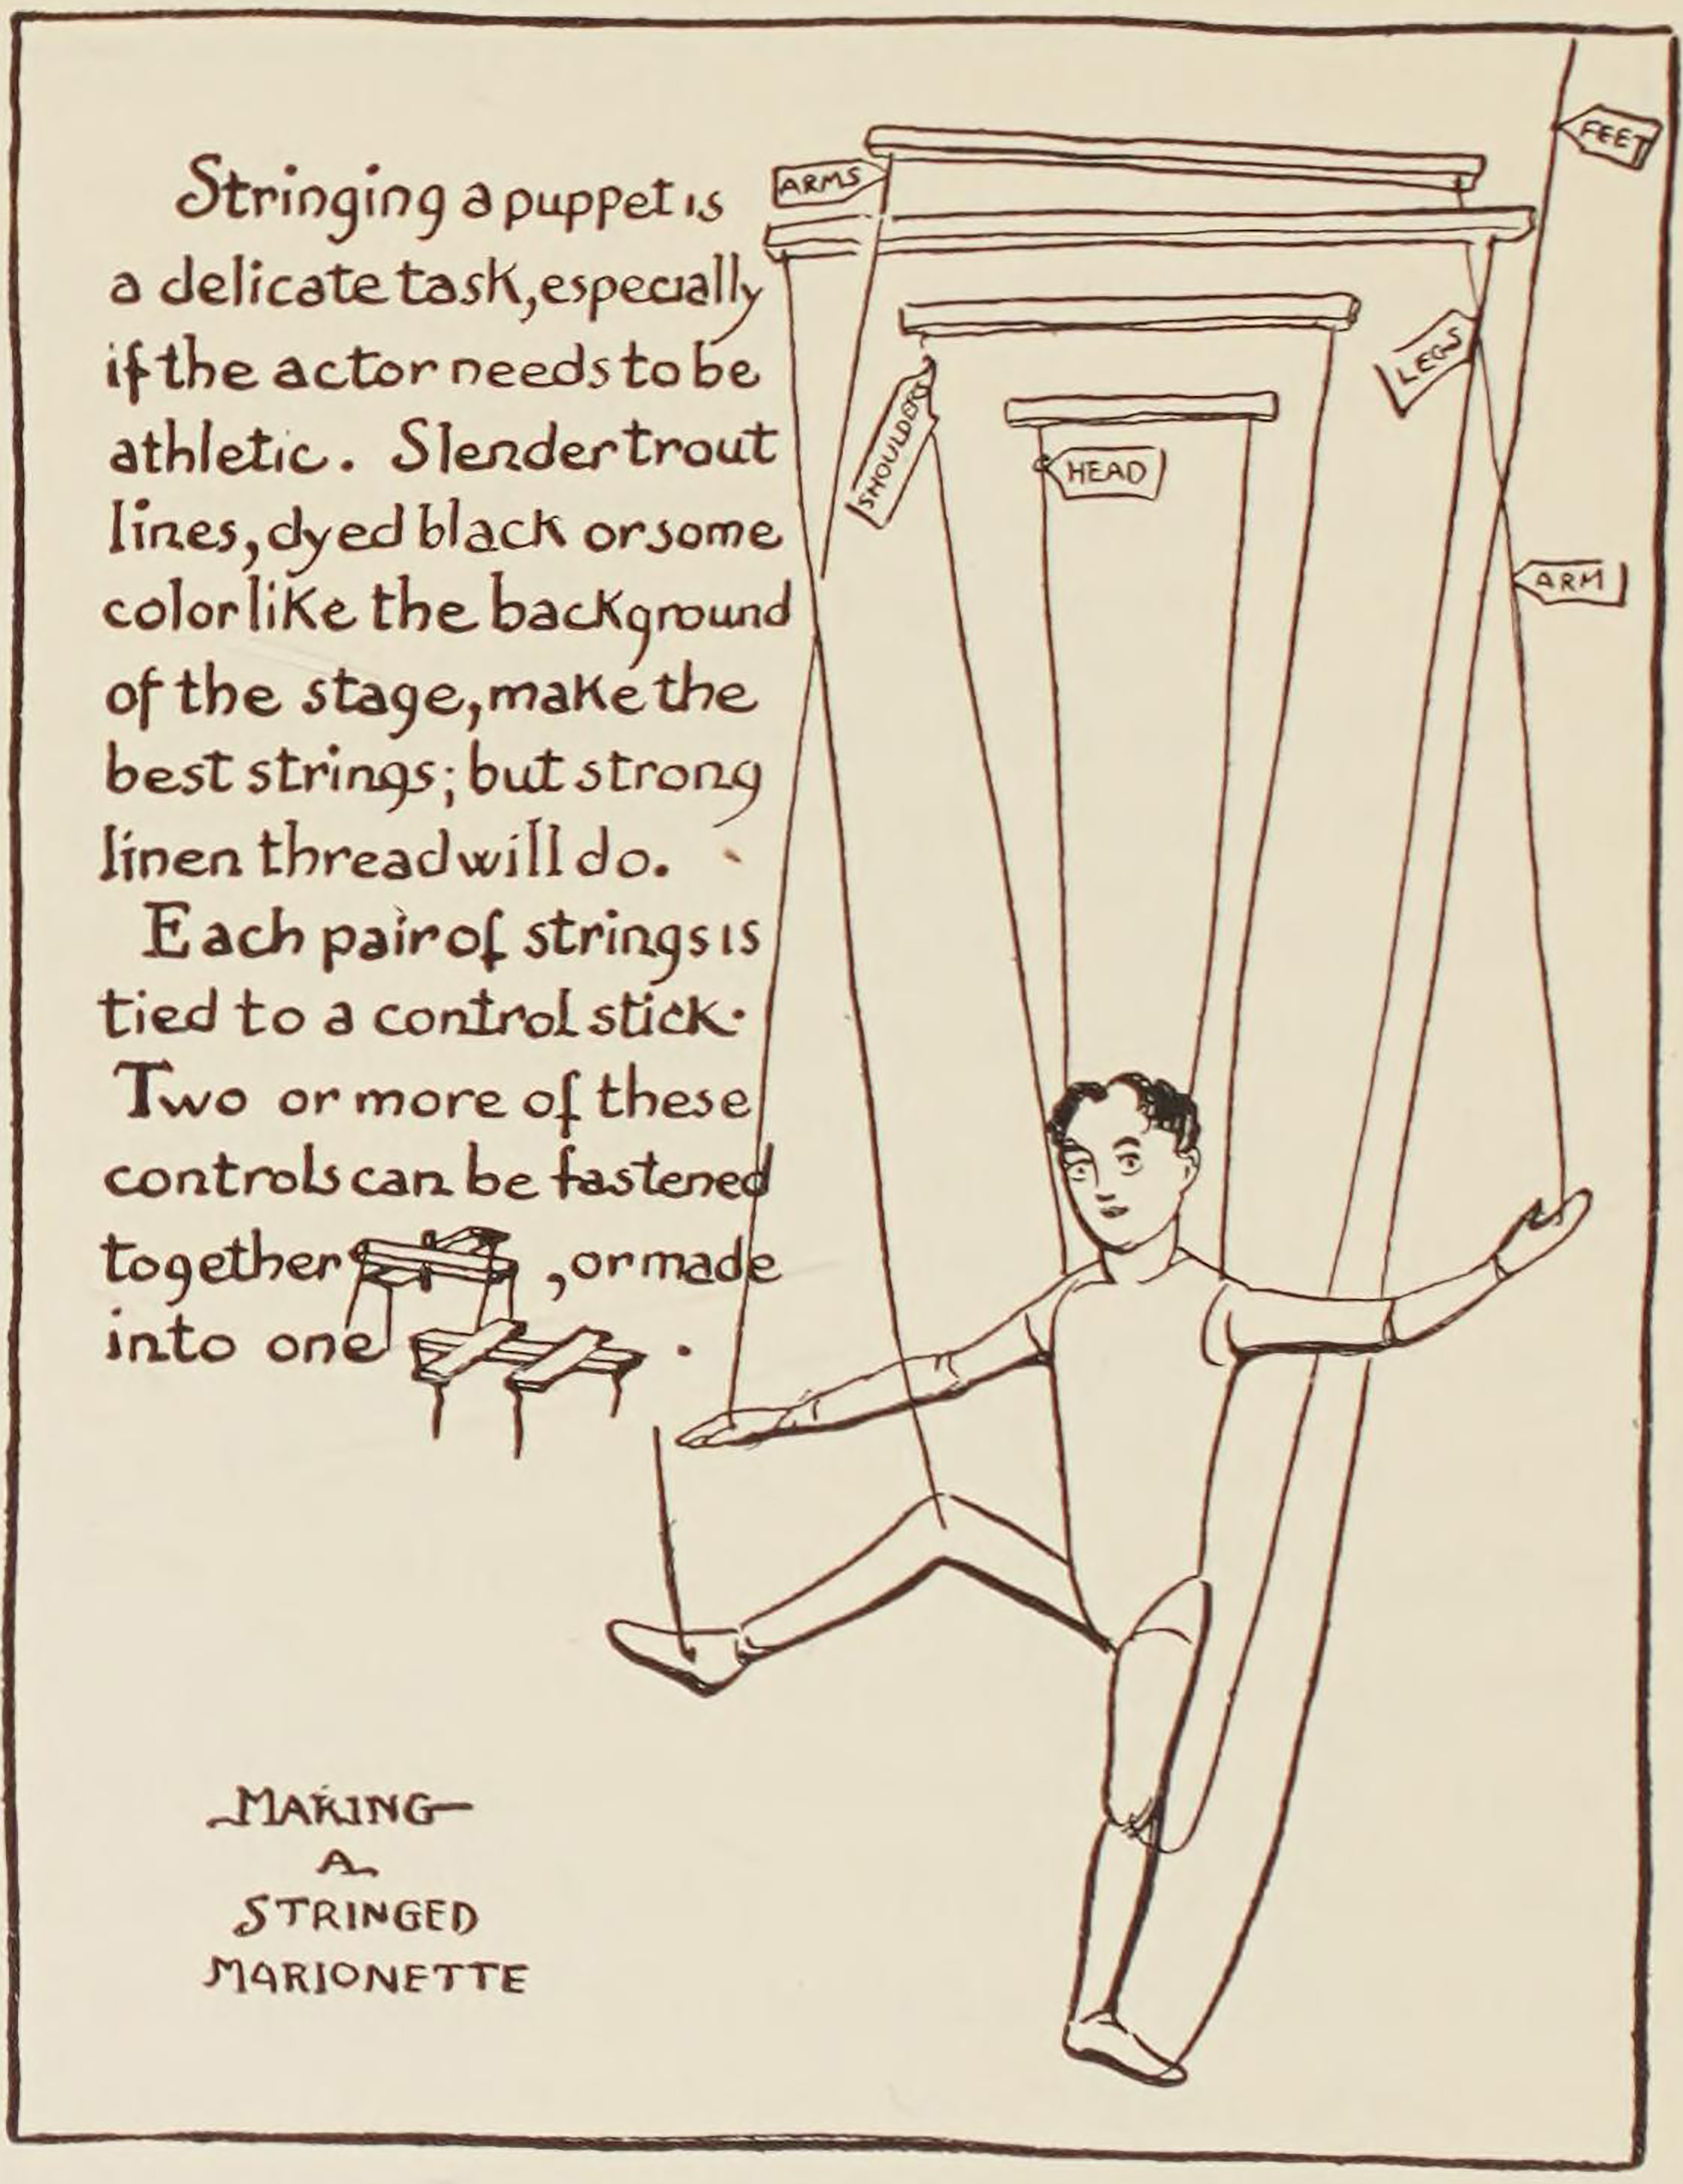 Stringing a puppet is
a delicate task, especially
if the actor needs to be
athletic. Slender trout
lines, dyed black or some
color like the background
of the stage, make the
best strings; but strong
linen thread will do.
Each pair of strings is
tied to a control stick.
Two or more of these
controls can be fastened
together , or made
into one .
MAKING
A
STRINGED
MARIONETTE
FEET
ARMS
LEGS
SHOULDERS
HEAD
ARM